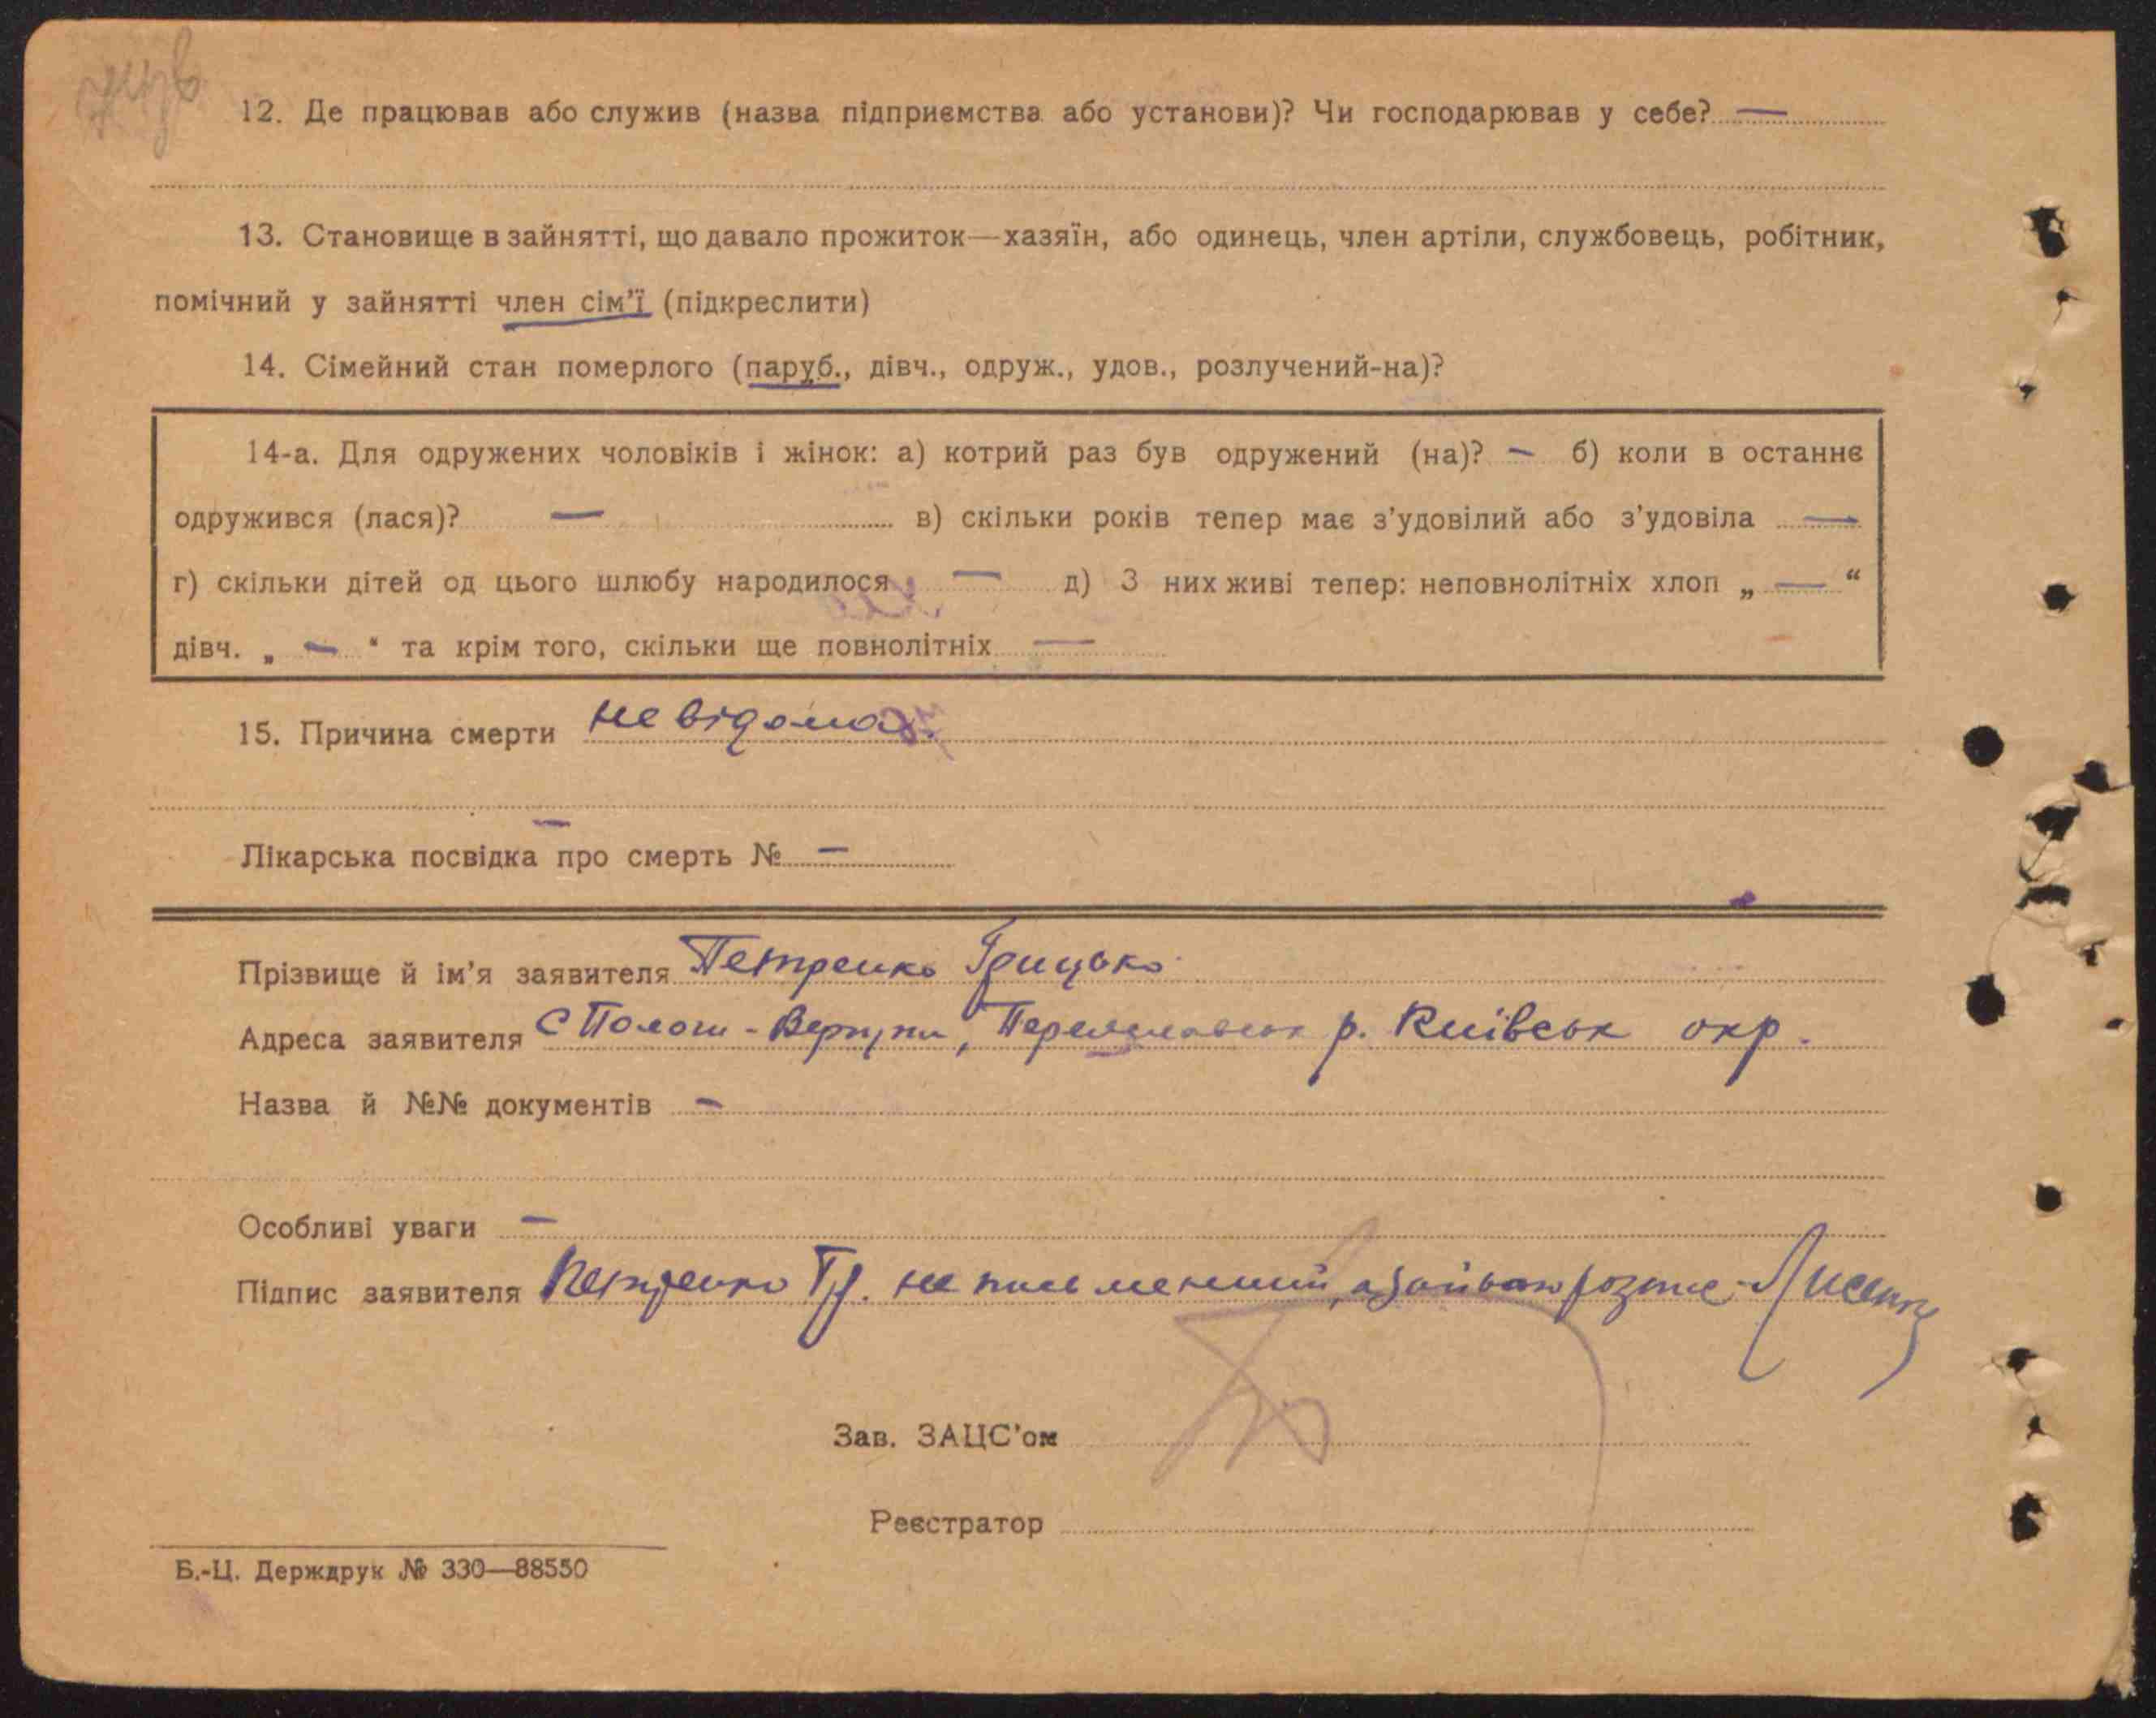 12. Де працював або служив (назва підприємства або установи)? Чи господарював у себе? —
13. Становище в зайнятті, що давало прожиток—хазяїн, або одинець, член артіли, службовець, робітник,
помічний у зайнятті член сім'ї (підкреслити)
14. Сімейний стан померлого (паруб., дівч., одруж., удов., розлучений-на)?
14-а. Для одружених чоловіків і жінок: а) котрий раз був одружений (на)? — б) коли в останнє
одружився (лася)? — в) скільки років тепер має з'удовілий або з'удовіла —
г) скільки дітей од цього шлюбу народилося — д) З них живі тепер: неповнолітніх хлоп „ — “
дівч. „ — “ та крім того, скільки ще повнолітніх —
15. Причина смерти невідома.
Лікарська посвідка про смерть № —
Прізвище й ім'я заявителя Петренко Грицько
Адреса заявителя С Полози-Вергуни, Переяславськ р. Київськ окр.
Назва й №№ документів —
Особливі уваги —
Підпис заявителя Петренко Гр. не письменний, а за його розпис Лисенко
Зав. ЗАЦС'ом
Реєстратор
Б.-Ц. Держдрук № 330—88550